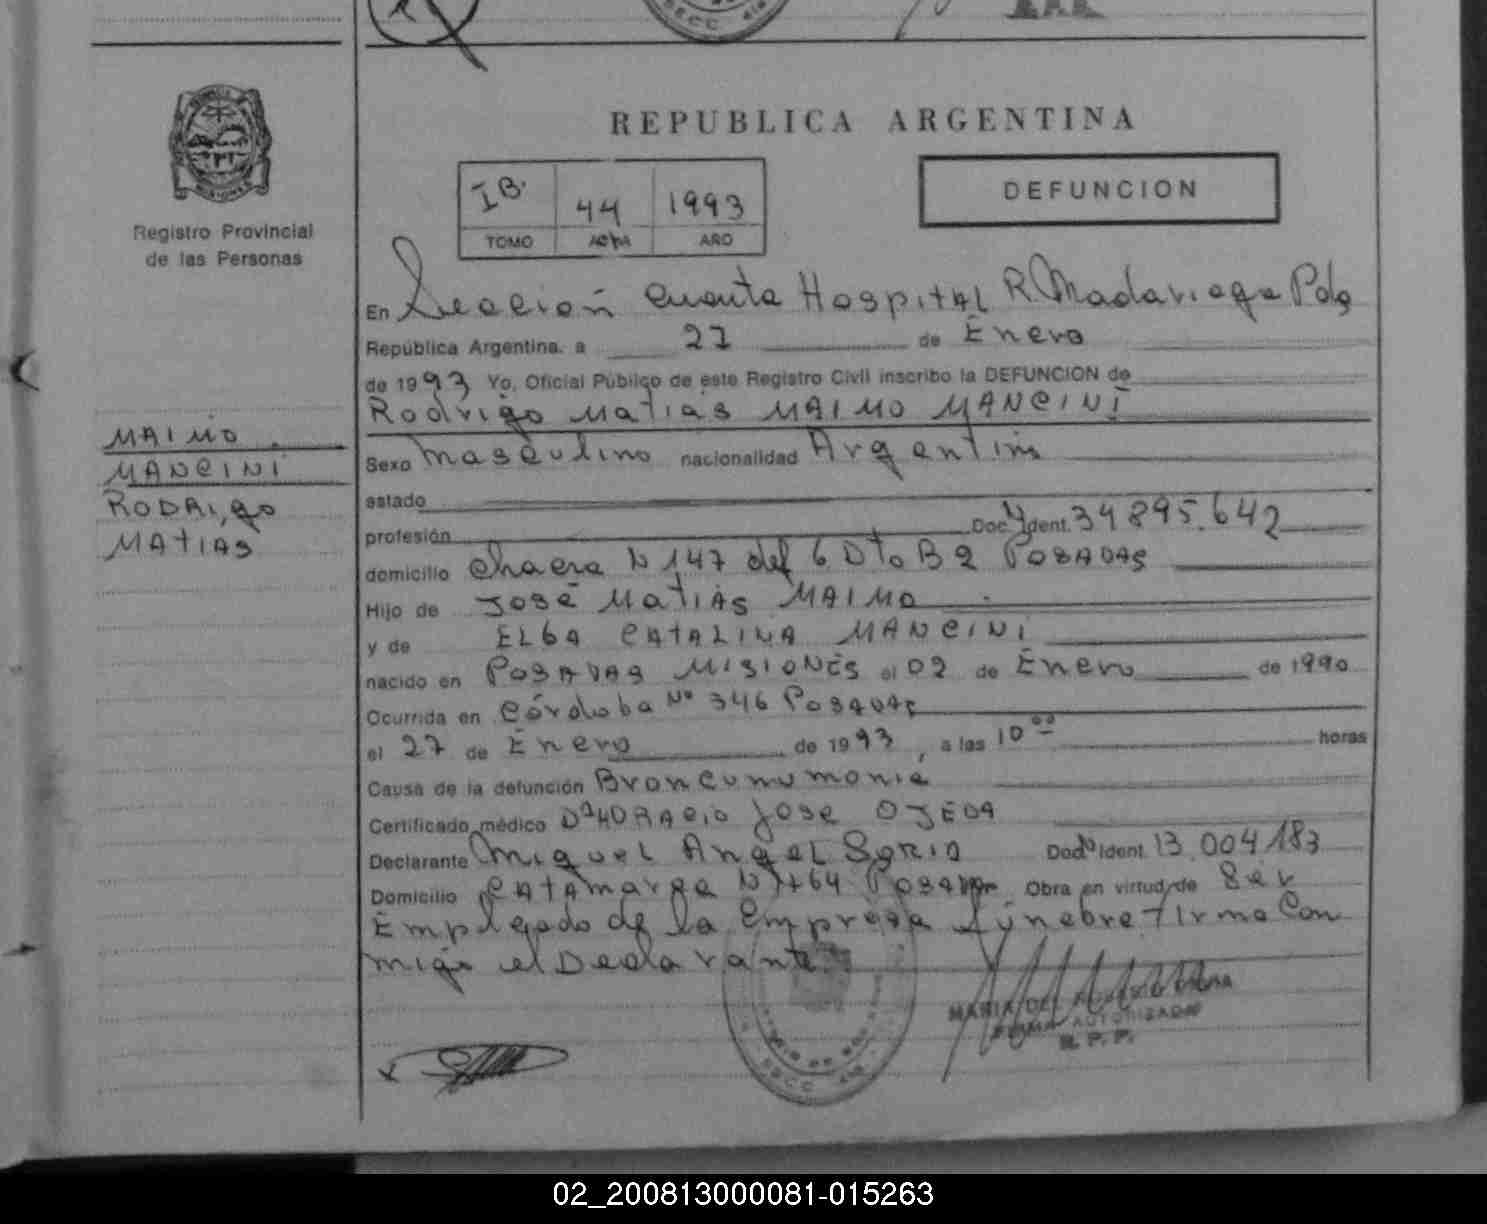 REPUBLICA ARGENTINA
DEFUNCION
IB. 44 1993
TOMO ACTA AÑO
Registro Provincial
de las Personas
En Sección Cuarta Hospital R. Madariaga Pdas
República Argentina. a 27 de Enero
de 1993 Yo, Oficial Público de este Registro Civil inscribo la DEFUNCION de
Rodrigo Matias MAIMO MANCINI
MAIMO
MANCINI
RODRIgo
MATIAS
Sexo Masculino nacionalidad Argentin
estado
profesión Doc. Ident. 34895.642
domicilio Chacra N 147 def 6 Dto B 2 POSADAS
Hijo de José Matias MAIMO
y de ELBA CATALINA MANCINI
nacido en POSADAS MISIONES el 02 de Enero de 1990
Ocurrida en Córdoba Nº 346 POSADAS
el 27 de Enero de 1993, a las 10 00 horas
Causa de la defunción Broncunumonia
Certificado médico Dº HORACIO Jose OJEDA
Declarante Miguel Angel SORIA Doc Ident. 13.004183
Domicilio Catamarca Posadas Obra en virtud de Ser
Emplegado de la Empresa fúnebre Firma Con
migo el Declarante
SECC. 4ta
MARIA DEL
FIRMA AUTORIZADA
R. P. P.
02_200813000081-015263